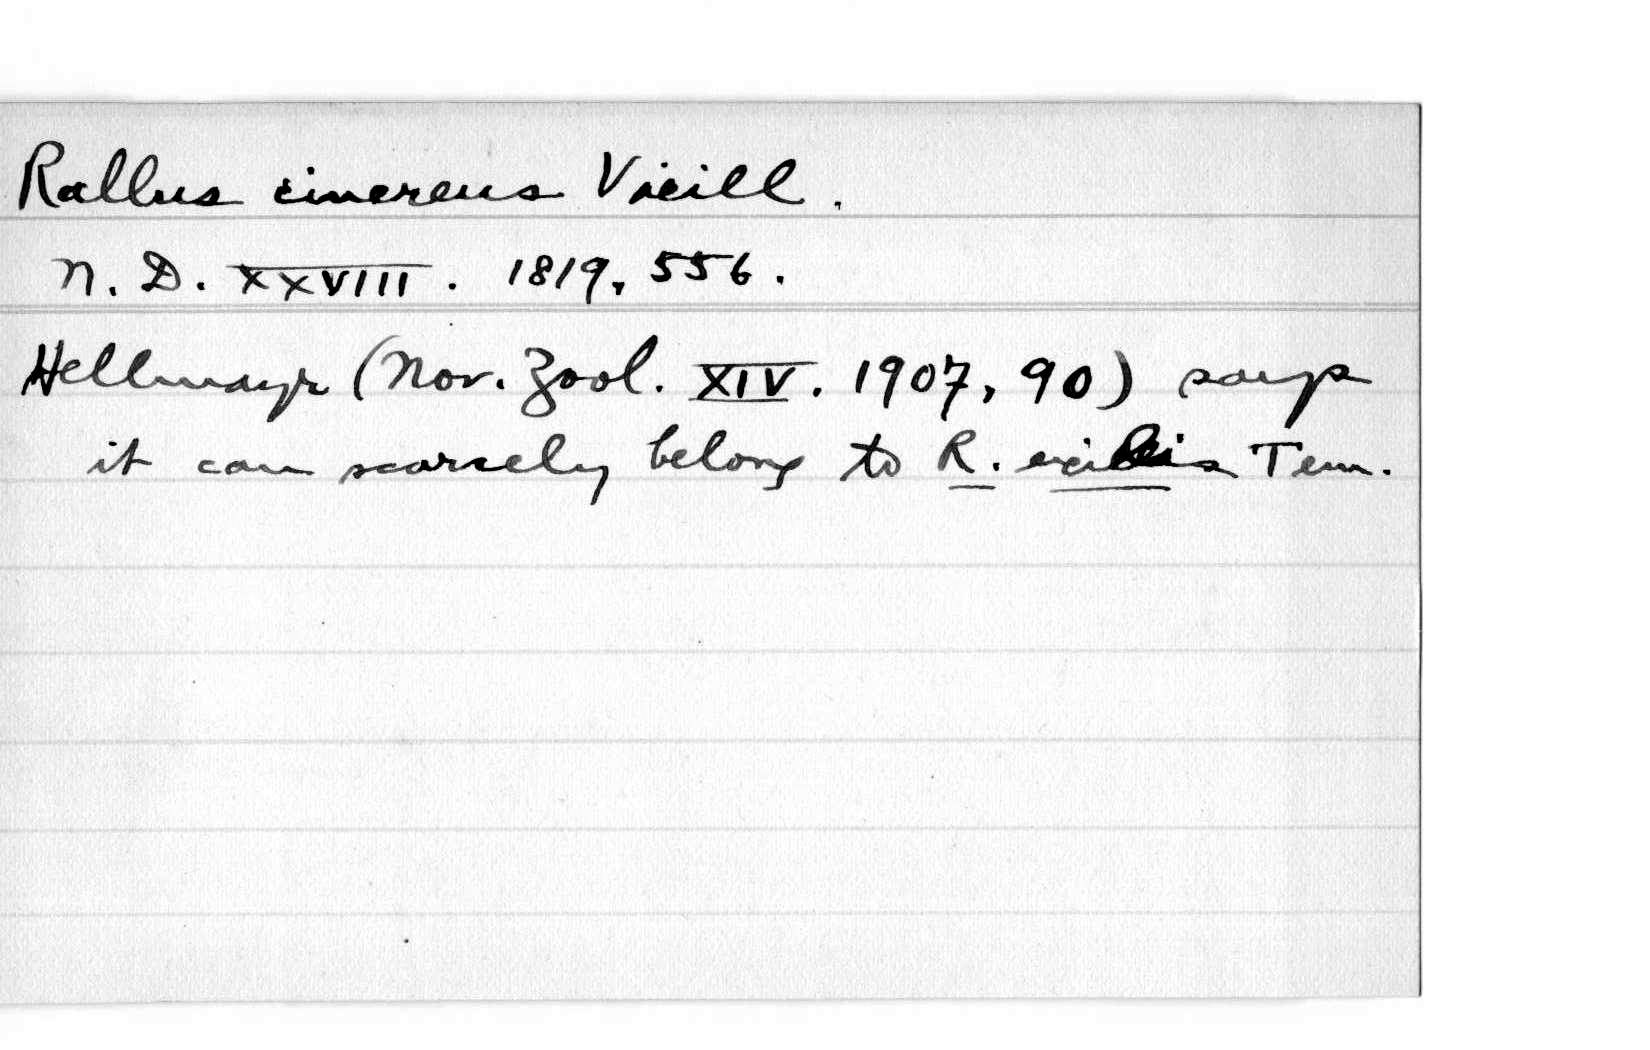 Rallus cinereus Vieill.
N. D. XXVIII. 1819, 556.
Hellmayr (Nov. Zool. XIV. 1907, 90) says
it can scarcely belong to R. exilis Tem.